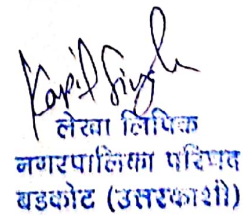 Kapil Singh
लेखा लिपिक
नगरपालिका परिषद
बडकोट (उत्तरकाशी)